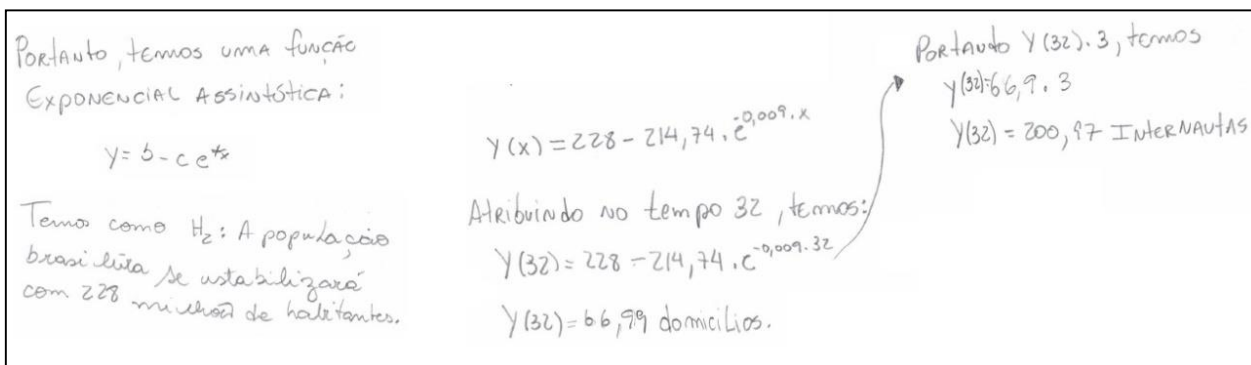 Portanto, temos uma função
Exponencial Assintótica:
y = b - c e^{kx}
Temos como H₂: A população
brasileira se estabilizará
com 228 milhões de habitantes.
Y(x) = 228 - 214,74 . e^{-0,009.x}
Atribuindo no tempo 32, temos:
Y(32) = 228 - 214,74 . e^{-0,009.32}
Y(32) = 66,99 domicilios.
Portando Y(32).3, temos
Y(32)=66,9 . 3
Y(32) = 200,97 Internautas